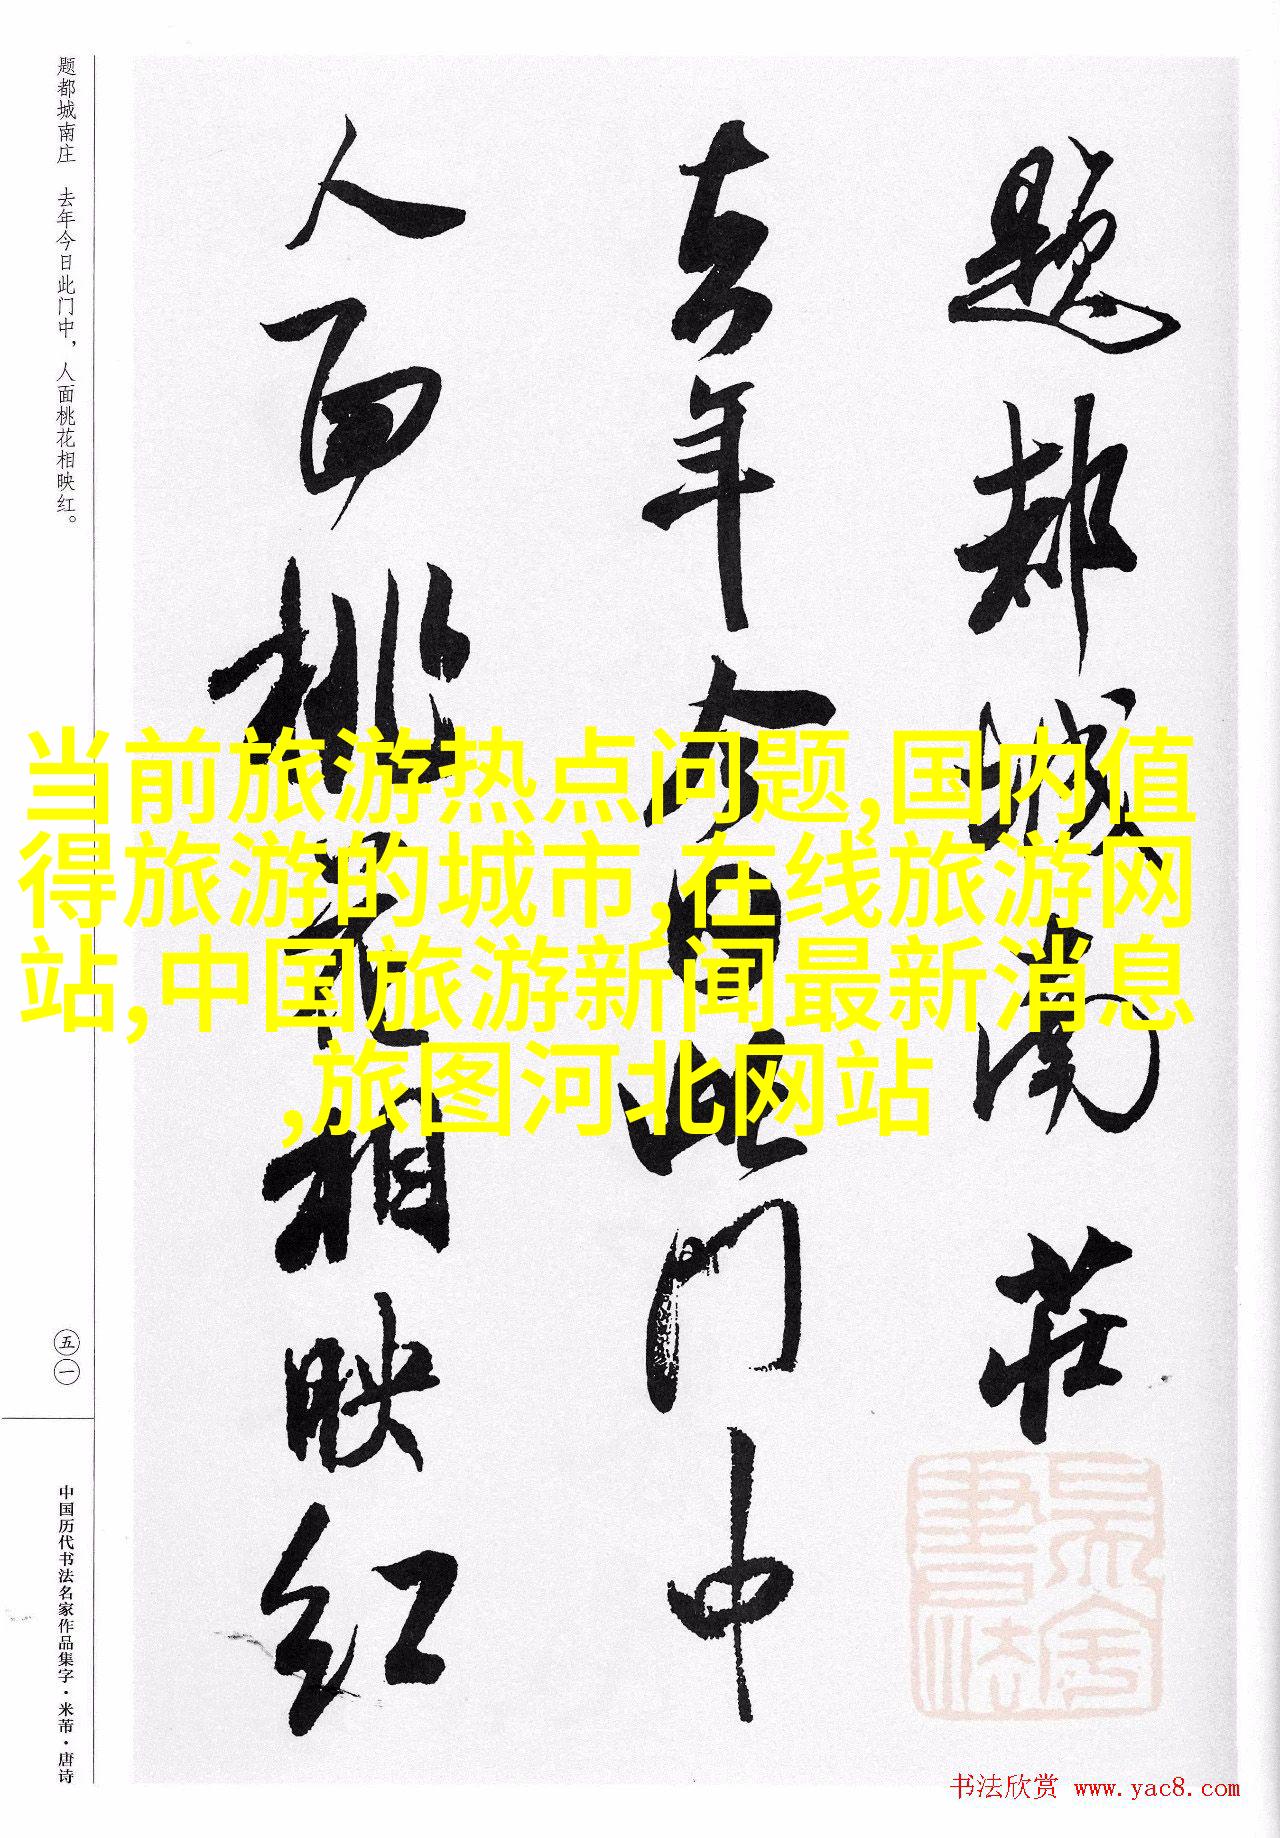 题都城南庄　去年今日此门中，人面桃花相映红。
题都城南莊
去年今日此门中
人面桃花相映红
当前旅游热点问题,国内值
得旅游的城市,在线旅游网
站,中国旅游新闻最新消息
,旅图河北网站
五一
中国历代书法名家作品集字·米芾·唐诗
书法欣赏 www.yac8.com